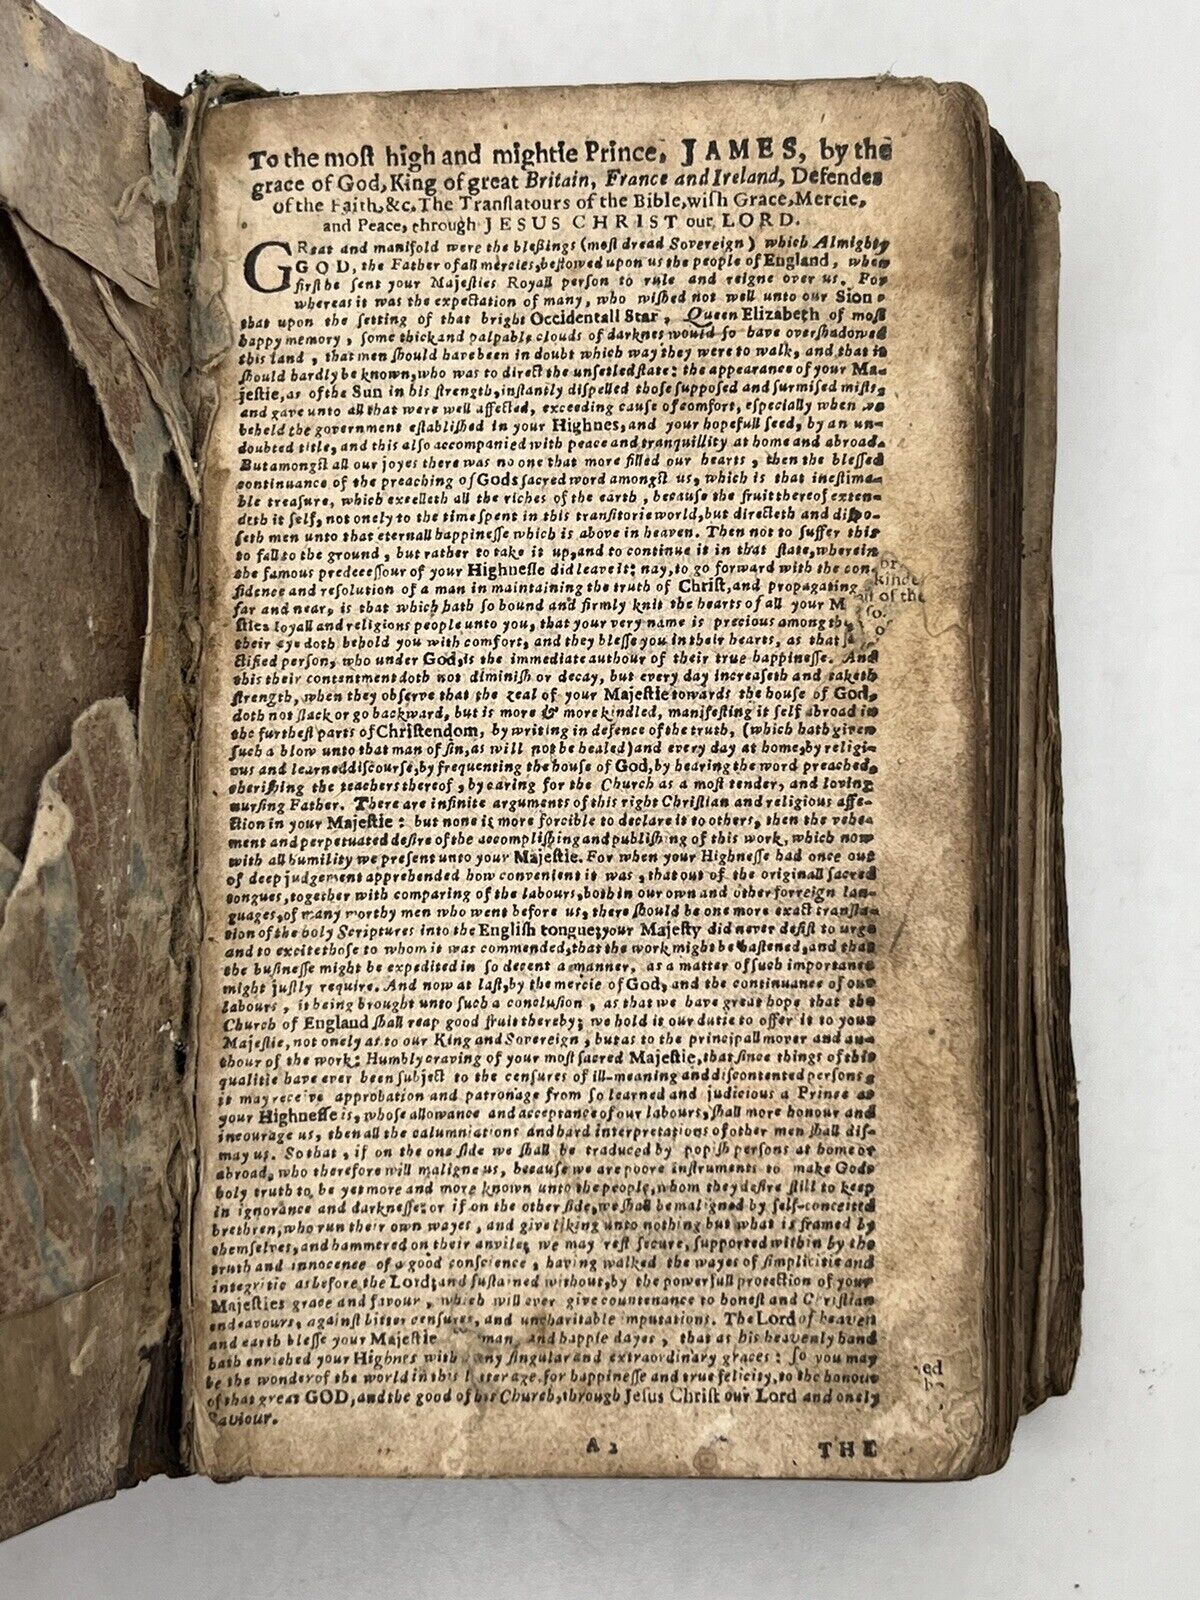 To the moſt high and mightie Prince, JAMES, by the
grace of God, King of great Britain, France and Ireland, Defender
of the Faith, &c. The Tranſlatours of the Bible, wiſh Grace, Mercie,
and Peace, through JESUS CHRIST our LORD.
GReat and manifold were the bleßings (moſt dread Sovereign) which Almighty
GOD, the Father of all mercies, beſtowed upon us the people of England, when
firſt he ſent your Majeſties Royall perſon to rule and reigne over us. For
whereas it was the expectation of many, who wiſhed not well unto our Sion,
that upon the ſetting of that bright Occidentall Star, Queen Elizabeth of moſt
happy memory, ſome thick and palpable clouds of darknes would ſo have overſhadowed
this land, that men ſhould have been in doubt which way they were to walk, and that it
ſhould hardly be known, who was to direct the unſetled ſtate: the appearance of your Ma-
jeſtie, as of the Sun in his ſtrength, inſtantly diſpelled thoſe ſuppoſed and ſurmiſed miſts,
and gave unto all that were well affected, exceeding cauſe of comfort, eſpecially when we
beheld the government eſtabliſhed in your Highnes, and your hopefull ſeed, by an un-
doubted title, and this alſo accompanied with peace and tranquillity at home and abroad.
But amongſt all our joyes there was no one that more filled our hearts, then the bleſſed
continuance of the preaching of Gods ſacred word amongſt us, which is that ineſtima-
ble treaſure, which excelleth all the riches of the earth, becauſe the fruit thereof exten-
deth it ſelf, not onely to the time ſpent in this tranſitorie world, but directeth and diſpo-
ſeth men unto that eternall happineſſe which is above in heaven. Then not to ſuffer this
to fall to the ground, but rather to take it up, and to continue it in that ſtate, wherein
the famous predeceſſour of your Highneſſe did leave it: nay, to go forward with the con-
fidence and reſolution of a man in maintaining the truth of Chriſt, and propagating
far and near, is that which hath ſo bound and firmly knit the hearts of all your M
ſties loyall and religious people unto you, that your very name is precious among the
their eye doth behold you with comfort, and they bleſſe you in their hearts, as that
ctified perſon, who under God, is the immediate authour of their true happineſſe. And
this their contentment doth not diminiſh or decay, but every day increaſeth and taketh
ſtrength, when they obſerve that the zeal of your Majeſtie towards the houſe of God,
doth not ſlack or go backward, but is more & more kindled, manifeſting it ſelf abroad in
the furtheſt parts of Chriſtendom, by writing in defence of the truth, (which hath given
ſuch a blow unto that man of ſin, as will not be healed) and every day at home, by religi-
ous and learned diſcourſe, by frequenting the houſe of God, by hearing the word preached,
cheriſhing the teachers thereof, by caring for the Church as a moſt tender, and loving
nurſing Father. There are infinite arguments of this right Chriſtian and religious affe-
ction in your Majeſtie: but none is more forcible to declare it to others, then the vehe-
ment and perpetuated deſire of the accompliſhing and publiſhing of this work, which now
with all humility we preſent unto your Majeſtie. For when your Highneſſe had once out
of deep judgement apprehended how convenient it was, that out of the originall ſacred
tongues, together with comparing of the labours, both in our own and other forreign lan-
guages, of many worthy men who went before us, there ſhould be one more exact tranſla-
tion of the holy Scriptures into the Engliſh tongue; your Majeſty did never deſiſt to urge
and to excite thoſe to whom it was commended, that the work might be haſtened, and that
the buſineſſe might be expedited in ſo decent a manner, as a matter of ſuch importance
might juſtly require. And now at laſt, by the mercie of God, and the continuance of our
labours, it being brought unto ſuch a concluſion, as that we have great hope that the
Church of England ſhall reap good fruit thereby; we hold it our dutie to offer it to your
Majeſtie, not onely as to our King and Sovereign, but as to the principall mover and au-
thour of the work: Humbly craving of your moſt ſacred Majeſtie, that ſince things of this
qualitie have ever been ſubject to the cenſures of ill-meaning and diſcontented perſons,
it may receive approbation and patronage from ſo learned and judicious a Prince as
your Highneſſe is, whoſe allowance and acceptance of our labours, ſhall more honour and
incourage us, then all the calumniations and hard interpretations of other men ſhall diſ-
may us. So that, if on the one ſide we ſhall be traduced by popiſh perſons at home or
abroad, who therefore will maligne us, becauſe we are poore inſtruments to make Gods
holy truth to be yet more and more known unto the people, whom they deſire ſtill to keep
in ignorance and darkneſſe: or if on the other ſide, we ſhall be maligned by ſelf-conceited
brethren, who run their own wayes, and give liking unto nothing but what is framed by
themſelves, and hammered on their anvile; we may reſt ſecure, ſupported within by the
truth and innocence of a good conſcience, having walked the wayes of ſimplicitie and
integritie as before the Lord; and ſuſtained without, by the powerfull protection of your
Majeſties grace and favour, which will ever give countenance to honeſt and Chriſtian
endeavours, againſt bitter cenſures, and uncharitable imputations. The Lord of heaven
and earth bleſſe your Majeſtie man and happie dayes, that as his heavenly hand
hath enriched your Highnes with any ſingular and extraordinary graces: ſo you may
be the wonder of the world in this l ter age, for happineſſe and true felicity, to the honour
of that great GOD, and the good of his Church, through Jeſus Chriſt our Lord and onely
Saviour.
A 2 THE
br
kinde
of the
ſo.
ed